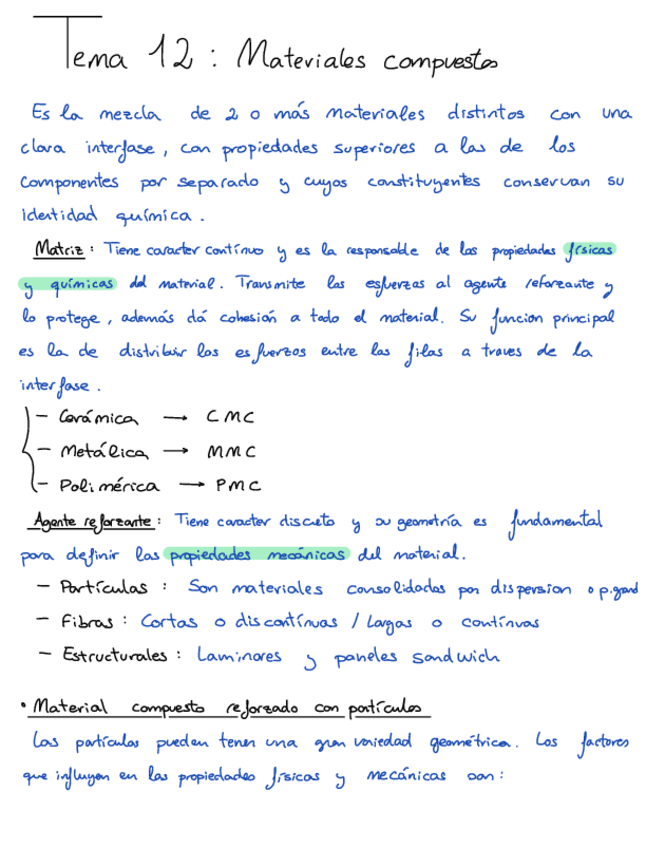 Tema 12 : Materiales compuestos
Es la mezcla de 2 o más materiales distintos con una
clara interfase, con propiedades superiores a las de los
componentes por separado y cuyos constituyentes conservan su
identidad química.
Matriz: Tiene caracter contínuo y es la responsable de las propiedades físicas
y químicas del material. Transmite los esfuerzos al agente reforzante y
lo protege, además dá cohesión a todo el material. Su funcion principal
es la de distribuir los esfuerzos entre las filas a traves de la
interfase.
- Cerámica → CMC
- Metálica → MMC
- Polimérica → PMC
Agente reforzante: Tiene caracter discreto y su geometría es fundamental
para definir las propiedades mecánicas del material.
- Partículas : Son materiales consolidados por dispersion o p.grand
- Fibras : Cortas o discontínuas / Largas o contínuas
- Estructurales : Laminares y paneles sandwich
• Material compuesto reforzado con partículas
Las partículas pueden tener una gran variedad geométrica. Los factores
que influyen en las propiedades físicas y mecánicas son: